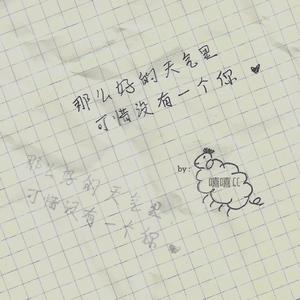 那么好的天气里
可惜没有一个你
by:
嘻嘻CC
那么好的天气里
可惜没有一个你